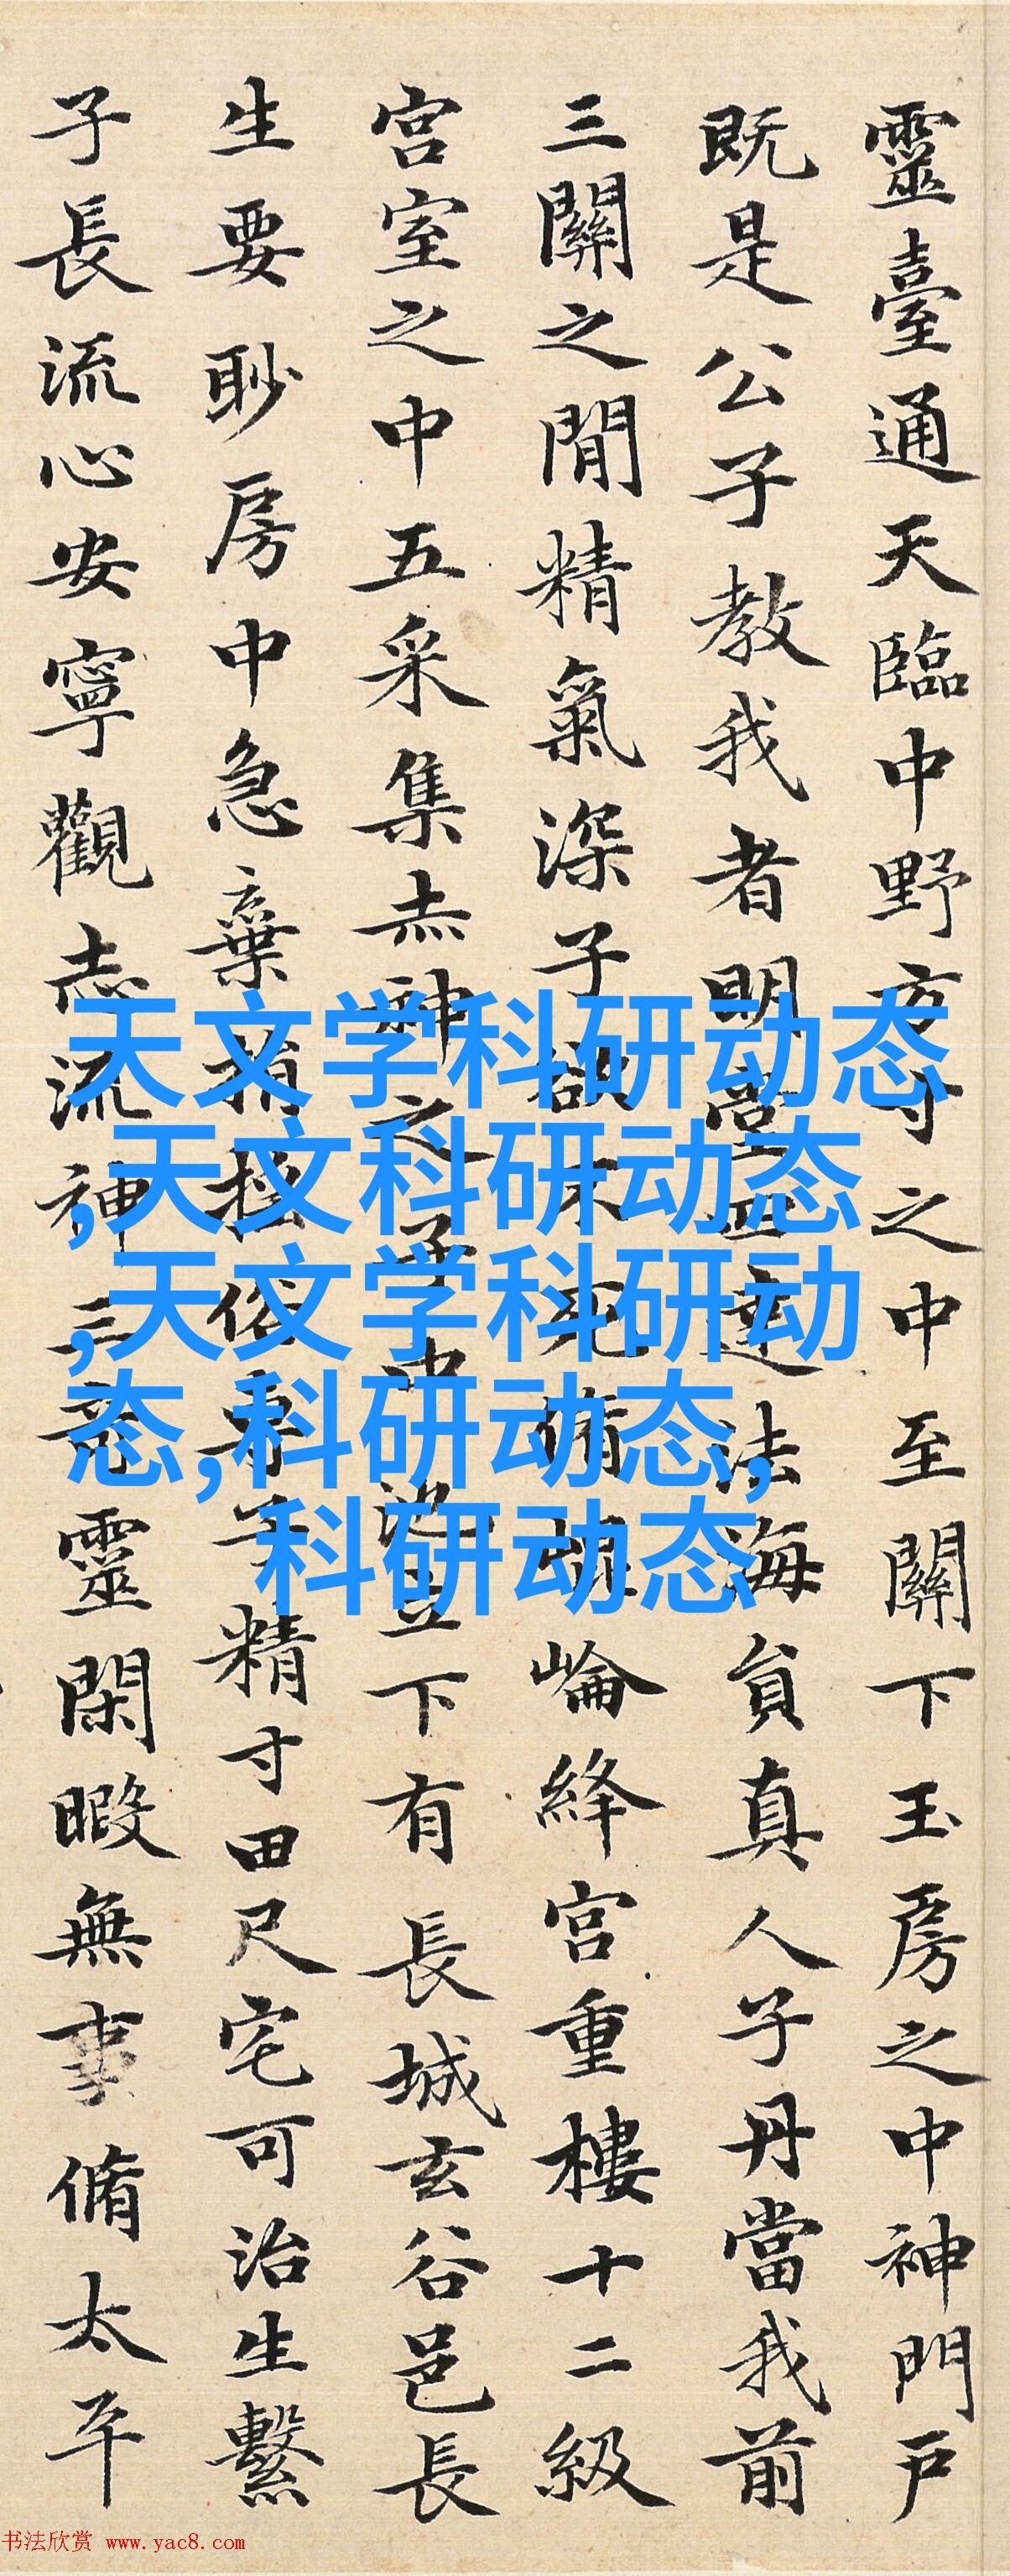 靈臺通天臨中野方寸之中至關下玉房之中神門戶
既是公子教我者明堂四達法海員真人子丹當我前
三關之閒精氣深子欲不死脩崐崘絳宮重樓十二級
宮室之中五采集赤神之子中池立下有長城玄谷邑長
生要眇房中急棄捐搖俗專子精寸田尺宅可治生繫
子長流心安寧觀志流神三奇靈閑暇無事脩太平
天文学科研动态
,天文科研动态
,天文学科研动
态,科研动态,
科研动态
书法欣赏 www.yac8.com